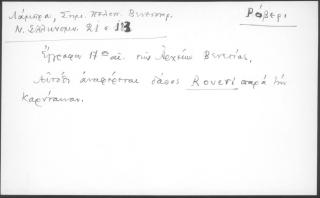 Λάμπρα, Σημ. Πελοπ. Βενετοκρ.
Ρόβερι
Ν. Ἑλληνομν. 21 σ. 113
Ἔγγραφα 17ου αἰ. τῶν Ἀρχείων Βενετίας.
Αὐτόθι ἀναφέρεται δάσος Roveri παρὰ τὴν
Καρύταιναν.